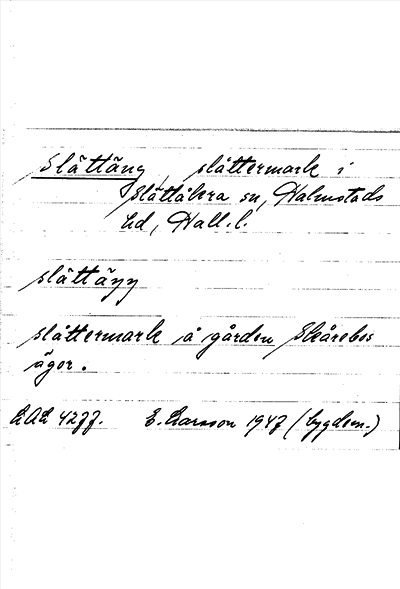 Slättäng, slåttermark i
Slättåkra sn, Halmstads
hd, Hall. l.
slättäŋ
slåttermark å gården Skårebos
ägor.
LAL 4277. E. Larsson 1947 (bygdem.)